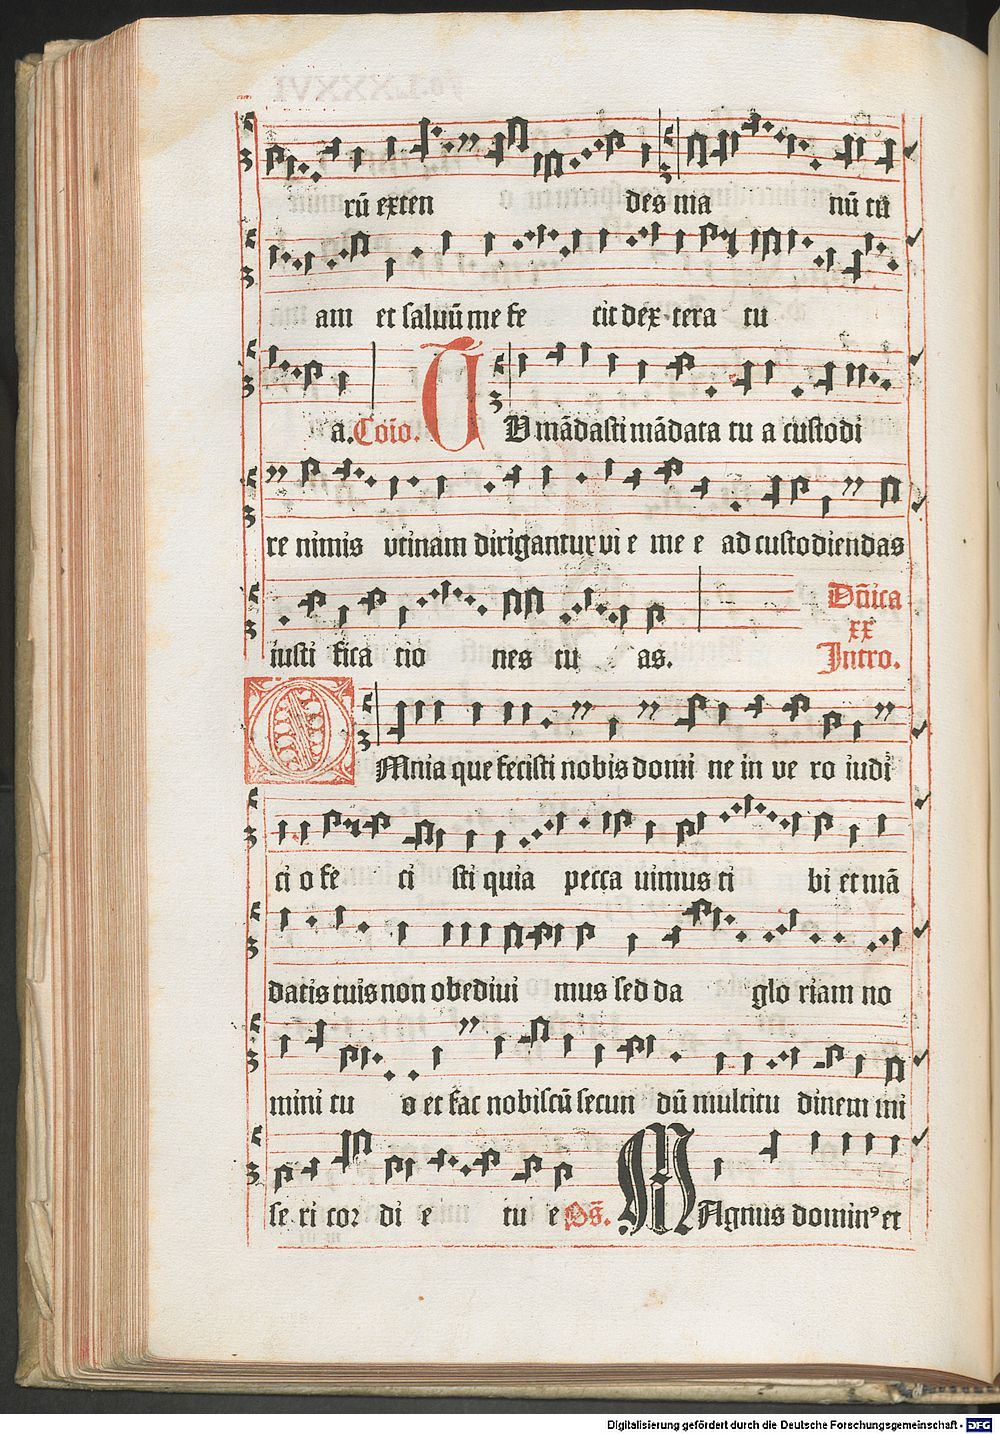 rū exten des ma nū tu
am et saluū me fe cit dex tera tu
a. Coio. TU mādasti mādata tu a custodi
re nimis utinam dirigantur vi e me e ad custodiendas
iusti fica tio nes tu as.
Dñica
xx
Intro.
OMnia que fecisti nobis domi ne in ve ro iudi
ci o fe ci sti quia pecca uimus ti bi et mā
datis tuis non obediui mus sed da glo riam no
mini tu o et fac nobiscū secun dū multitu dinem mi
se ri cor di e tu e Ps̄. MAgnus dominꝰ et
Digitalisierung gefördert durch die Deutsche Forschungsgemeinschaft - DFG